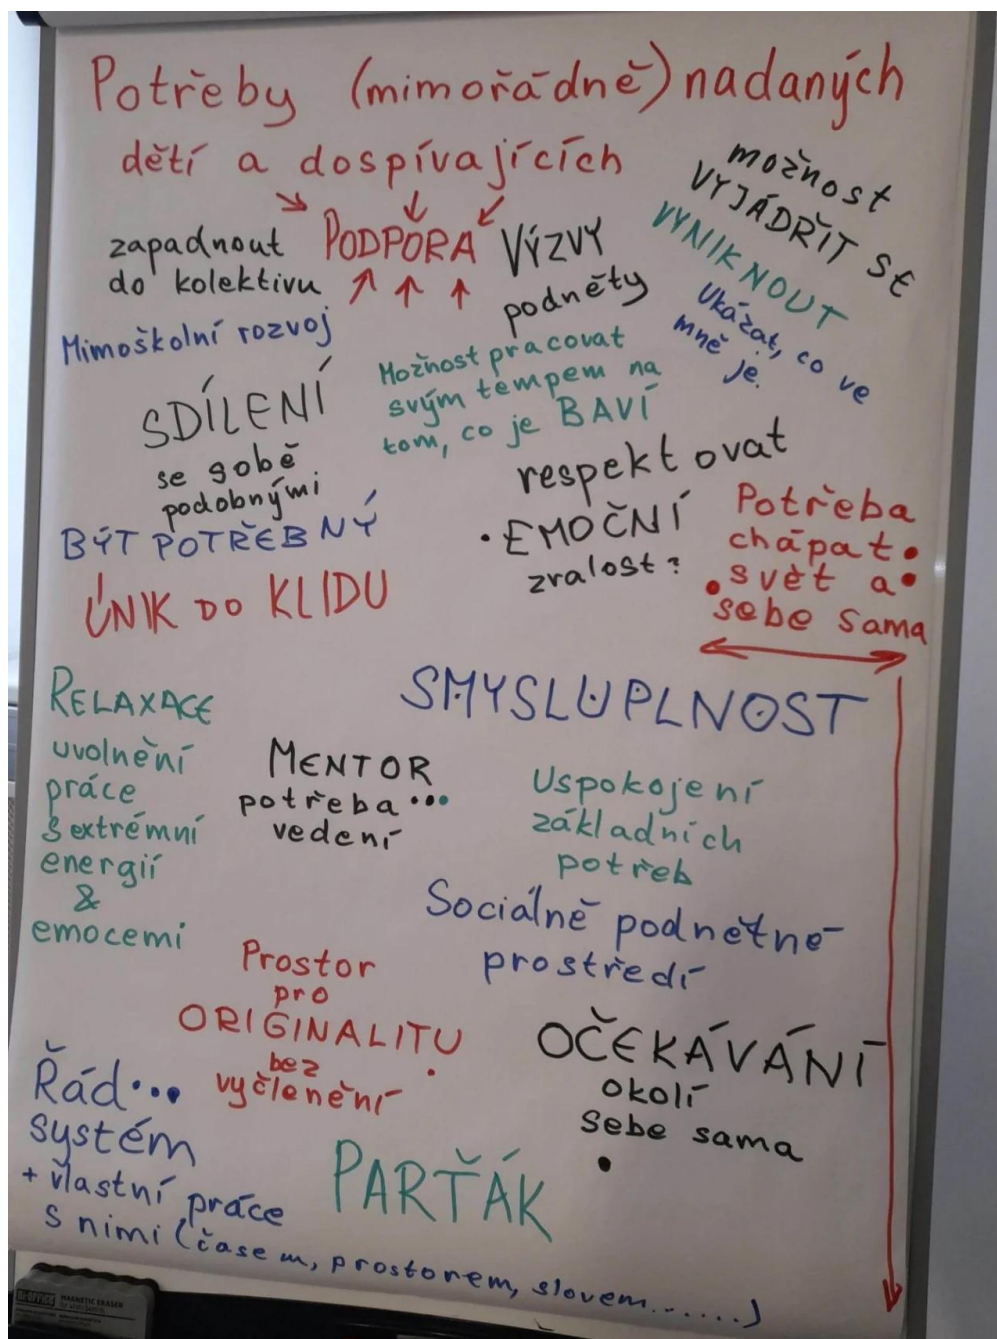 Potřeby (mimořádně) nadaných
dětí a dospívajících
PODPORA
zapadnout
do kolektivu
VÝZVY
podněty
možnost
VYJÁDŘIT SE
VYNIKNOUT
Ukázat, co ve
mně je.
Mimoškolní rozvoj
Možnost pracovat
svým tempem na
tom, co je BAVÍ
SDÍLENÍ
se sobě
podobnými
respektovat
• EMOČNÍ
zralost?
BÝT POTŘEBNÝ
Potřeba
chápat
svět a
sebe sama
ÚNIK DO KLIDU
RELAXACE
uvolnění
práce
s extrémní
energií
&
emocemi
SMYSLUPLNOST
MENTOR
potřeba...
vedení
Uspokojení
základních
potřeb
Sociálně podnětné
prostředí
Prostor
pro
ORIGINALITU
bez
vyčlenění
OČEKÁVÁNÍ
okolí
sebe sama
Řád...
systém
+ vlastní práce
s nimi (časem, prostorem, slovem......)
PARŤÁK
BI-OFFICE
MAGNETIC ERASER